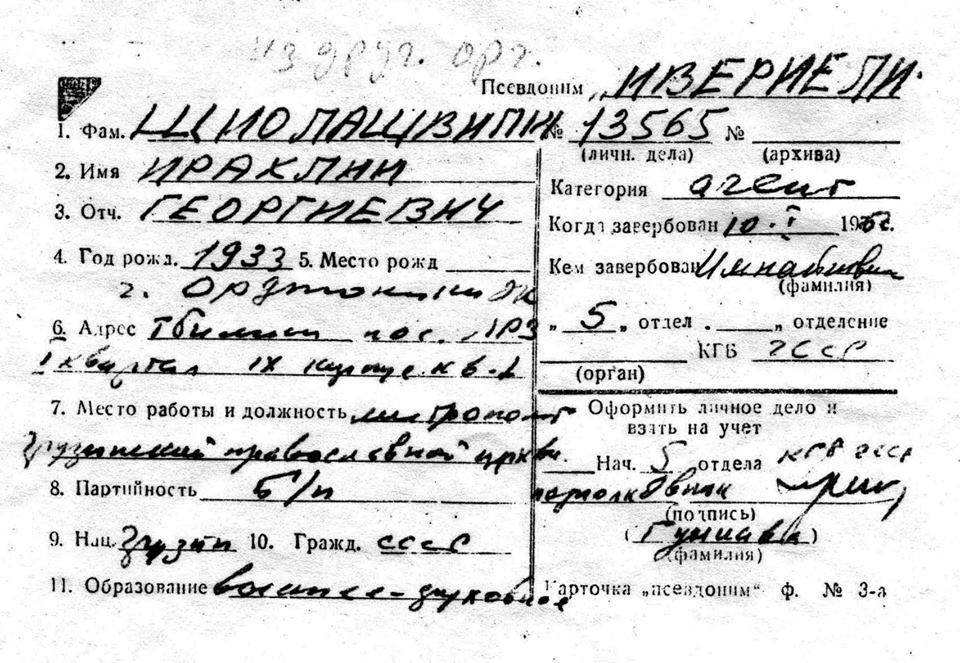 из друг. орг.
Псевдоним „ИВЕРИЕЛИ
1. Фам. ШИОЛАШВИЛИ № 13565 № 
(личн. дела) (архива)
2. Имя ИРАКЛИЙ
Категория агент
3. Отч. ГЕОРГИЕВИЧ
Когда завербован 10.I 196 г.
4. Год рожд. 1933 5. Место рожд
г. Орджоникидзе
Кем завербован
(фамилия)
6. Адрес Тбилиси пос.
„ 5 „ отдел . „ отделение
I квартал IX корпус кв.
КГБ ГССР
(орган)
7. Место работы и должность митрополит
Грузинской православной церкви
Оформить личное дело и
взять на учет
Нач. 5 отдела КГБ ГССР
8. Партийность б/п
подполковник
(подпись)
9. Нац. грузин 10. Гражд. СССР
(фамилия)
11. Образование высшее-духовное
Карточка „псевдоним“ ф. № 3-а